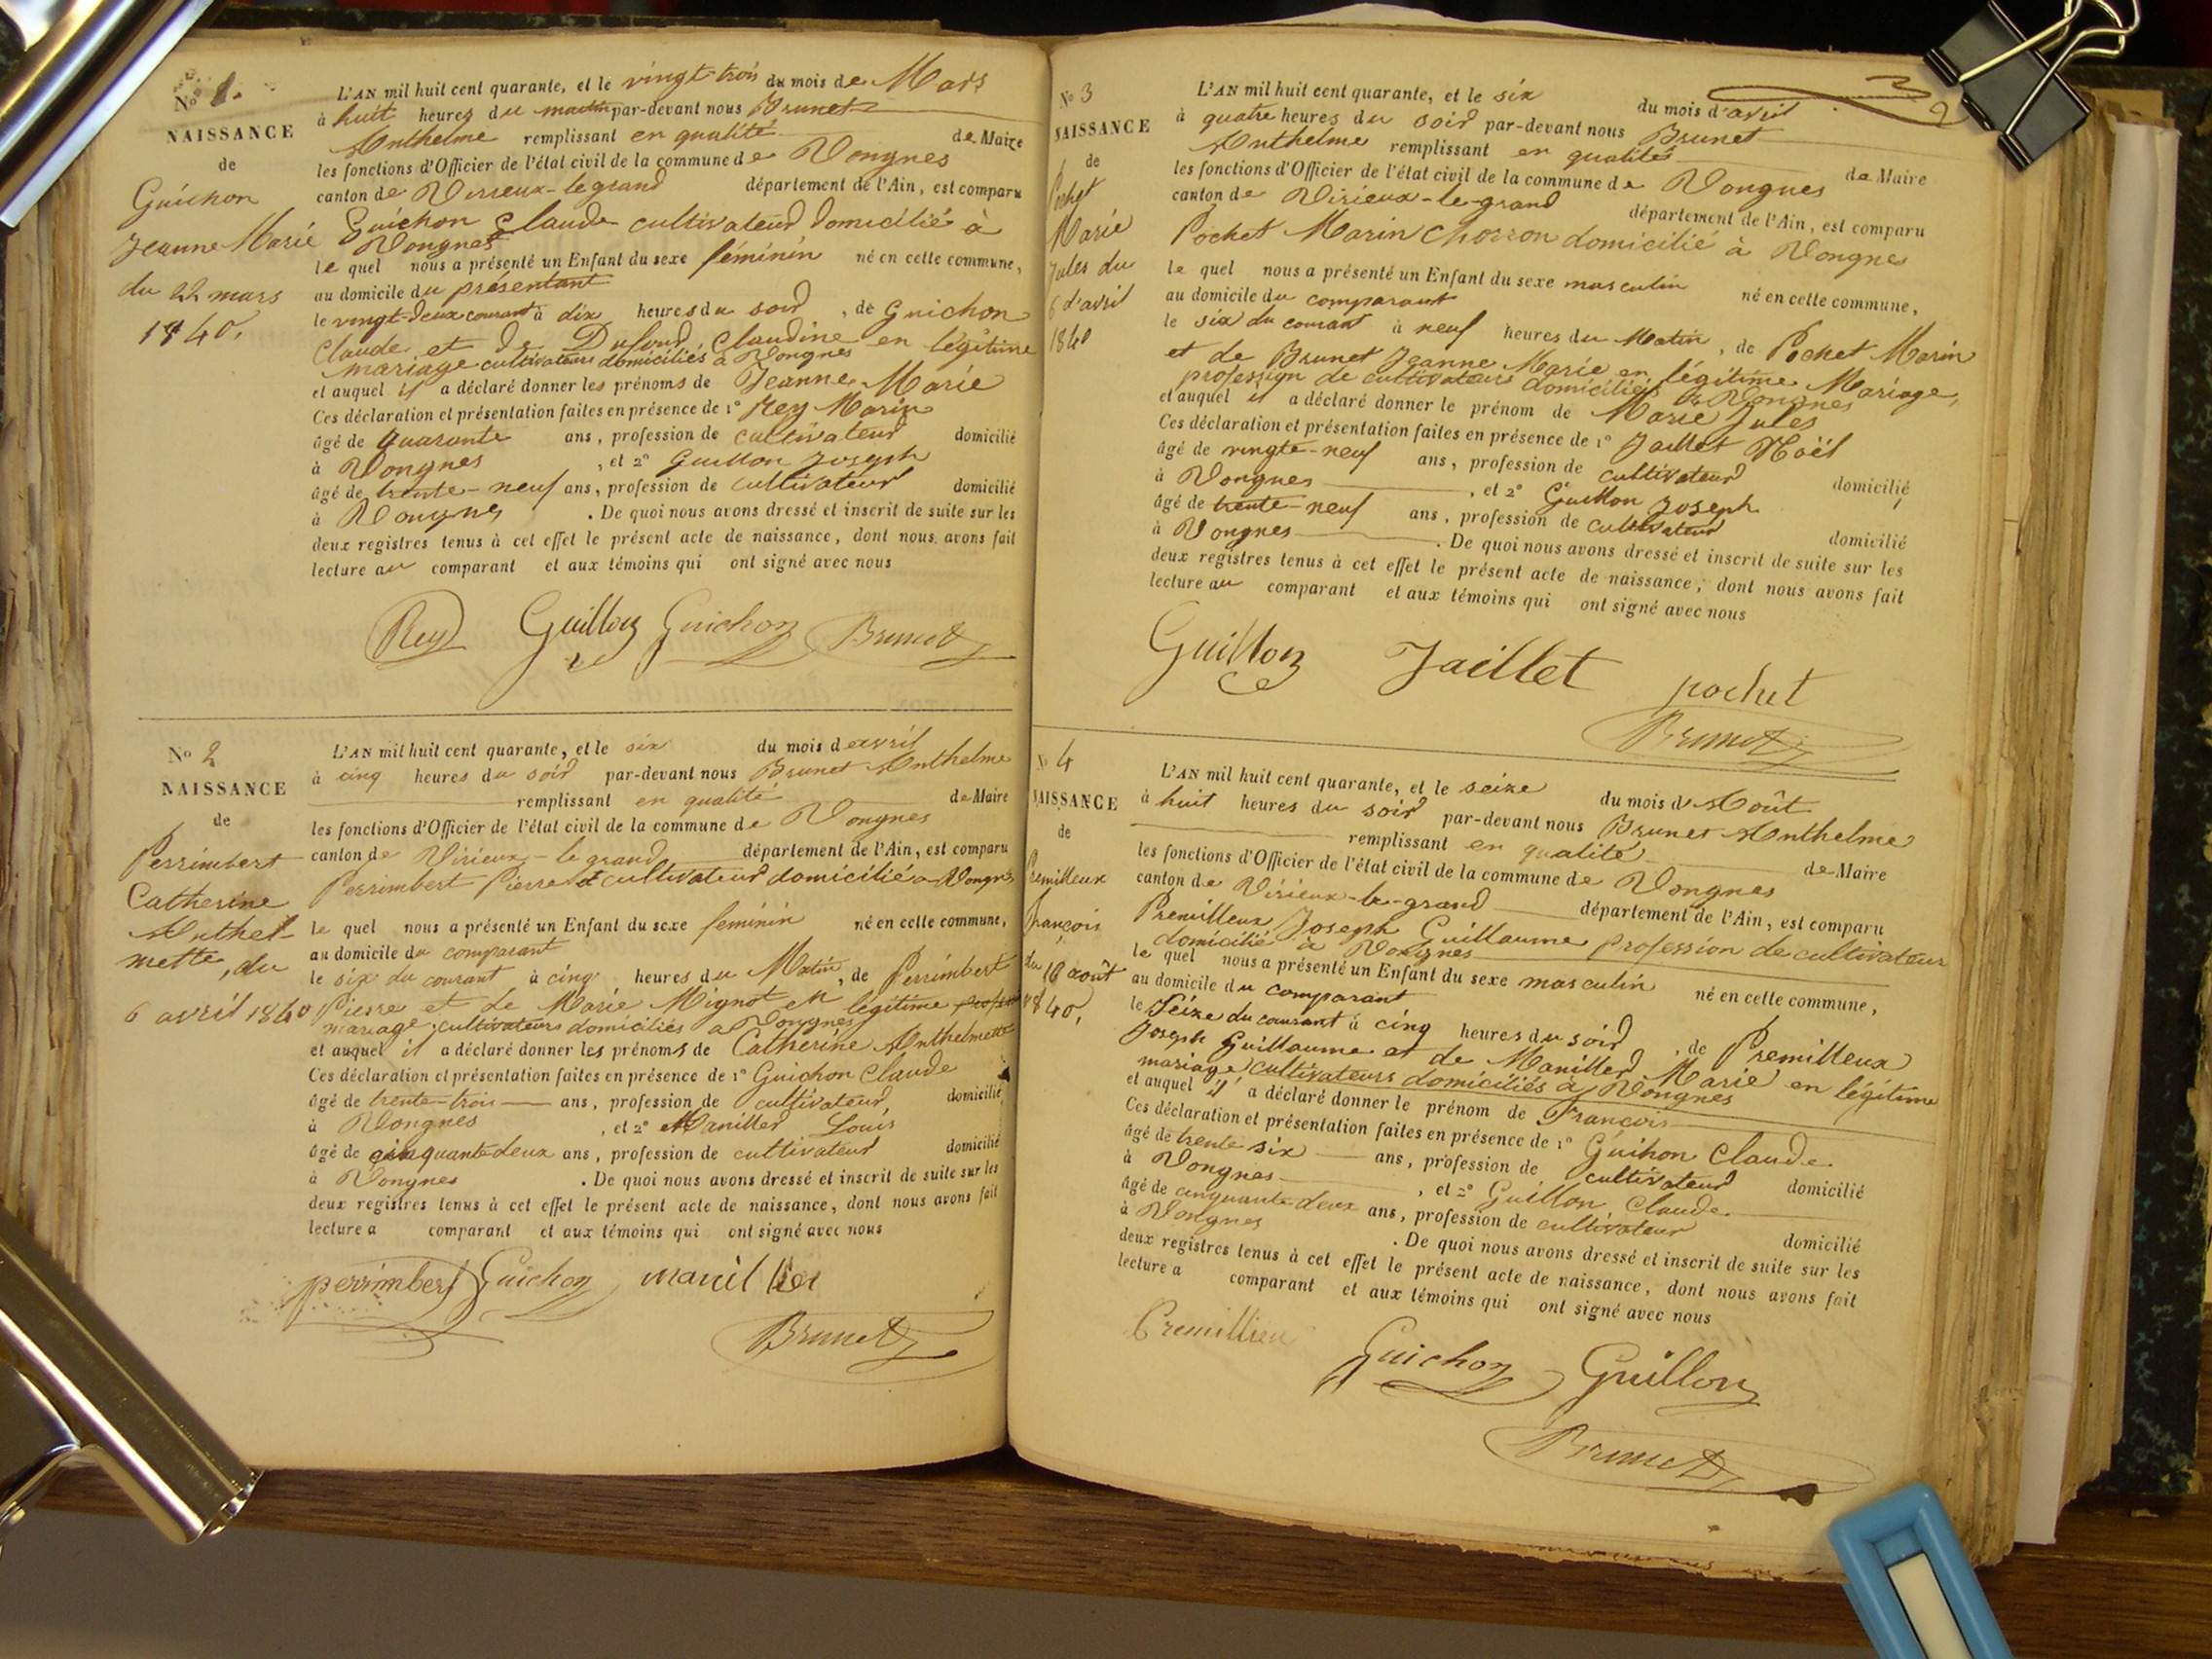 No 1.
NAISSANCE
de
Guichon
Jeanne Marie
du 22 mars
1840.
L'AN mil huit cent quarante, et le vingt-trois du mois de Mars
à huit heures du matin par-devant nous Brunet
Anthelme remplissant en qualité de Maire
les fonctions d'Officier de l'état civil de la commune de Vongnes
canton de Virieux-le grand département de l'Ain, est comparu
Guichon Claude cultivateur domicilié à
Vongnes
le quel nous a présenté un Enfant du sexe féminin né en cette commune,
au domicile du présentant
le vingt-deux courant à dix heures du soir, de Guichon
Claude et de Dufour Claudine en légitime
mariage cultivateurs domiciliés à Vongnes
et auquel il a déclaré donner les prénoms de Jeanne Marie
Ces déclaration et présentation faites en présence de 1° Rey Marin
âgé de quarante ans, profession de cultivateur domicilié
à Vongnes, et 2° Guillon Joseph
âgé de trente-neuf ans, profession de cultivateur domicilié
à Vongnes. De quoi nous avons dressé et inscrit de suite sur les
deux registres tenus à cet effet le présent acte de naissance, dont nous avons fait
lecture au comparant et aux témoins qui ont signé avec nous
Rey Guillon Guichon Brunet
No 2
NAISSANCE
de
Perrimbert
Catherine
Anthel-
mette, du
6 avril 1840
L'AN mil huit cent quarante, et le six du mois d'avril
à cinq heures du soir par-devant nous Brunet Anthelme
remplissant en qualité de Maire
les fonctions d'Officier de l'état civil de la commune de Vongnes
canton de Virieux-le grand département de l'Ain, est comparu
Perrimbert Pierre cultivateur domicilié a Vongnes
le quel nous a présenté un Enfant du sexe feminin né en cette commune,
au domicile du comparant
le six du courant à cinq heures du Matin, de Perrimbert
Pierre et de Marie Mignot en légitime
mariage, cultivateurs domiciliés a Vongnes
et auquel il a déclaré donner les prénoms de Catherine Anthelmette
Ces déclaration et présentation faites en présence de 1° Guichon Claude
âgé de trente-trois ans, profession de cultivateur domicilié
à Vongnes, et 2° Maniller Louis
âgé de cinquante deux ans, profession de cultivateur domicilié
à Vongnes. De quoi nous avons dressé et inscrit de suite sur les
deux registres tenus à cet effet le présent acte de naissance, dont nous avons fait
lecture a comparant et aux témoins qui ont signé avec nous
perrimbert Guichon manillier
Brunet
No 3
NAISSANCE
de
Pochet
Marie
Jules du
6 d'avril
1840
L'AN mil huit cent quarante, et le six du mois d'avril
à quatre heures du soir par-devant nous Brunet
Anthelme remplissant en qualité de Maire
les fonctions d'Officier de l'état civil de la commune de Vongnes
canton de Virieux-le-grand département de l'Ain, est comparu
Pochet Marin Charron domicilié à Vongne
le quel nous a présenté un Enfant du sexe masculin né en cette commune,
au domicile du comparant
le six du courant à neuf heures du Matin, de Pochet Marin
et de Brunet Jeanne Marie en légitime Mariage,
profession de cultivateurs domiciliés à Vongnes
et auquel il a déclaré donner le prénom de Marie Jules
Ces déclaration et présentation faites en présence de 1° Jaillet Noël
âgé de vingte-neuf ans, profession de cultivateur domicilié
à Vongnes, et 2° Guillon Joseph
âgé de trente-neuf ans, profession de cultivateur domicilié
à Vongnes. De quoi nous avons dressé et inscrit de suite sur les
deux registres tenus à cet effet le présent acte de naissance, dont nous avons fait
lecture au comparant et aux témoins qui ont signé avec nous
Guillon Jaillet pochet
Brunet
No 4
NAISSANCE
de
Premilleux
françois
du 16 août
1840,
L'AN mil huit cent quarante, et le seize du mois d'Août
à huit heures du soir par-devant nous Brunet Anthelme
remplissant en qualité de Maire
les fonctions d'Officier de l'état civil de la commune de Vongnes
canton de Virieux-le-grand département de l'Ain, est comparu
Premilleux Joseph Guillaume profession de cultivateur
domicilié à Vongnes
le quel nous a présenté un Enfant du sexe masculin né en cette commune,
au domicile du comparant
le Seize du courant à cinq heures du soir, de Premilleux
Joseph Guillaume et de Maniller Marie en légitime
mariage cultivateurs domiciliés à Vongnes
et auquel il a déclaré donner le prénom de François
Ces déclaration et présentation faites en présence de 1° Guihon Claude
âgé de trente six ans, profession de cultivateur domicilié
à Vongnes, et 2° Guillon Claude
âgé de cinquante deux ans, profession de cultivateur domicilié
à Vongnes. De quoi nous avons dressé et inscrit de suite sur les
deux registres tenus à cet effet le présent acte de naissance, dont nous avons fait
lecture a comparant et aux témoins qui ont signé avec nous
Premillieu
Guichon Guillon
Brunet